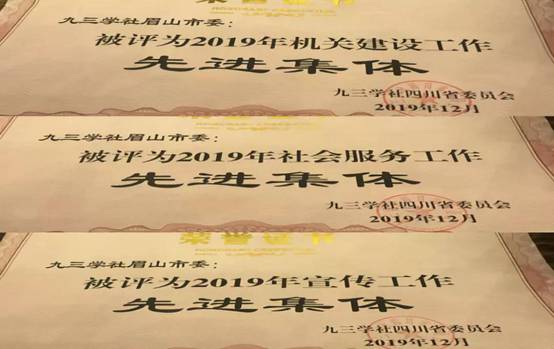 荣誉证书
九三学社眉山市委：
被评为2019年机关建设工作
先进集体
九三学社四川省委员会
2019年12月
九三学社眉山市委：
被评为2019年社会服务工作
先进集体
九三学社四川省委员会
2019年12月
荣誉证书
九三学社眉山市委：
被评为2019年宣传工作
先进集体
九三学社四川省委员会
2019年12月